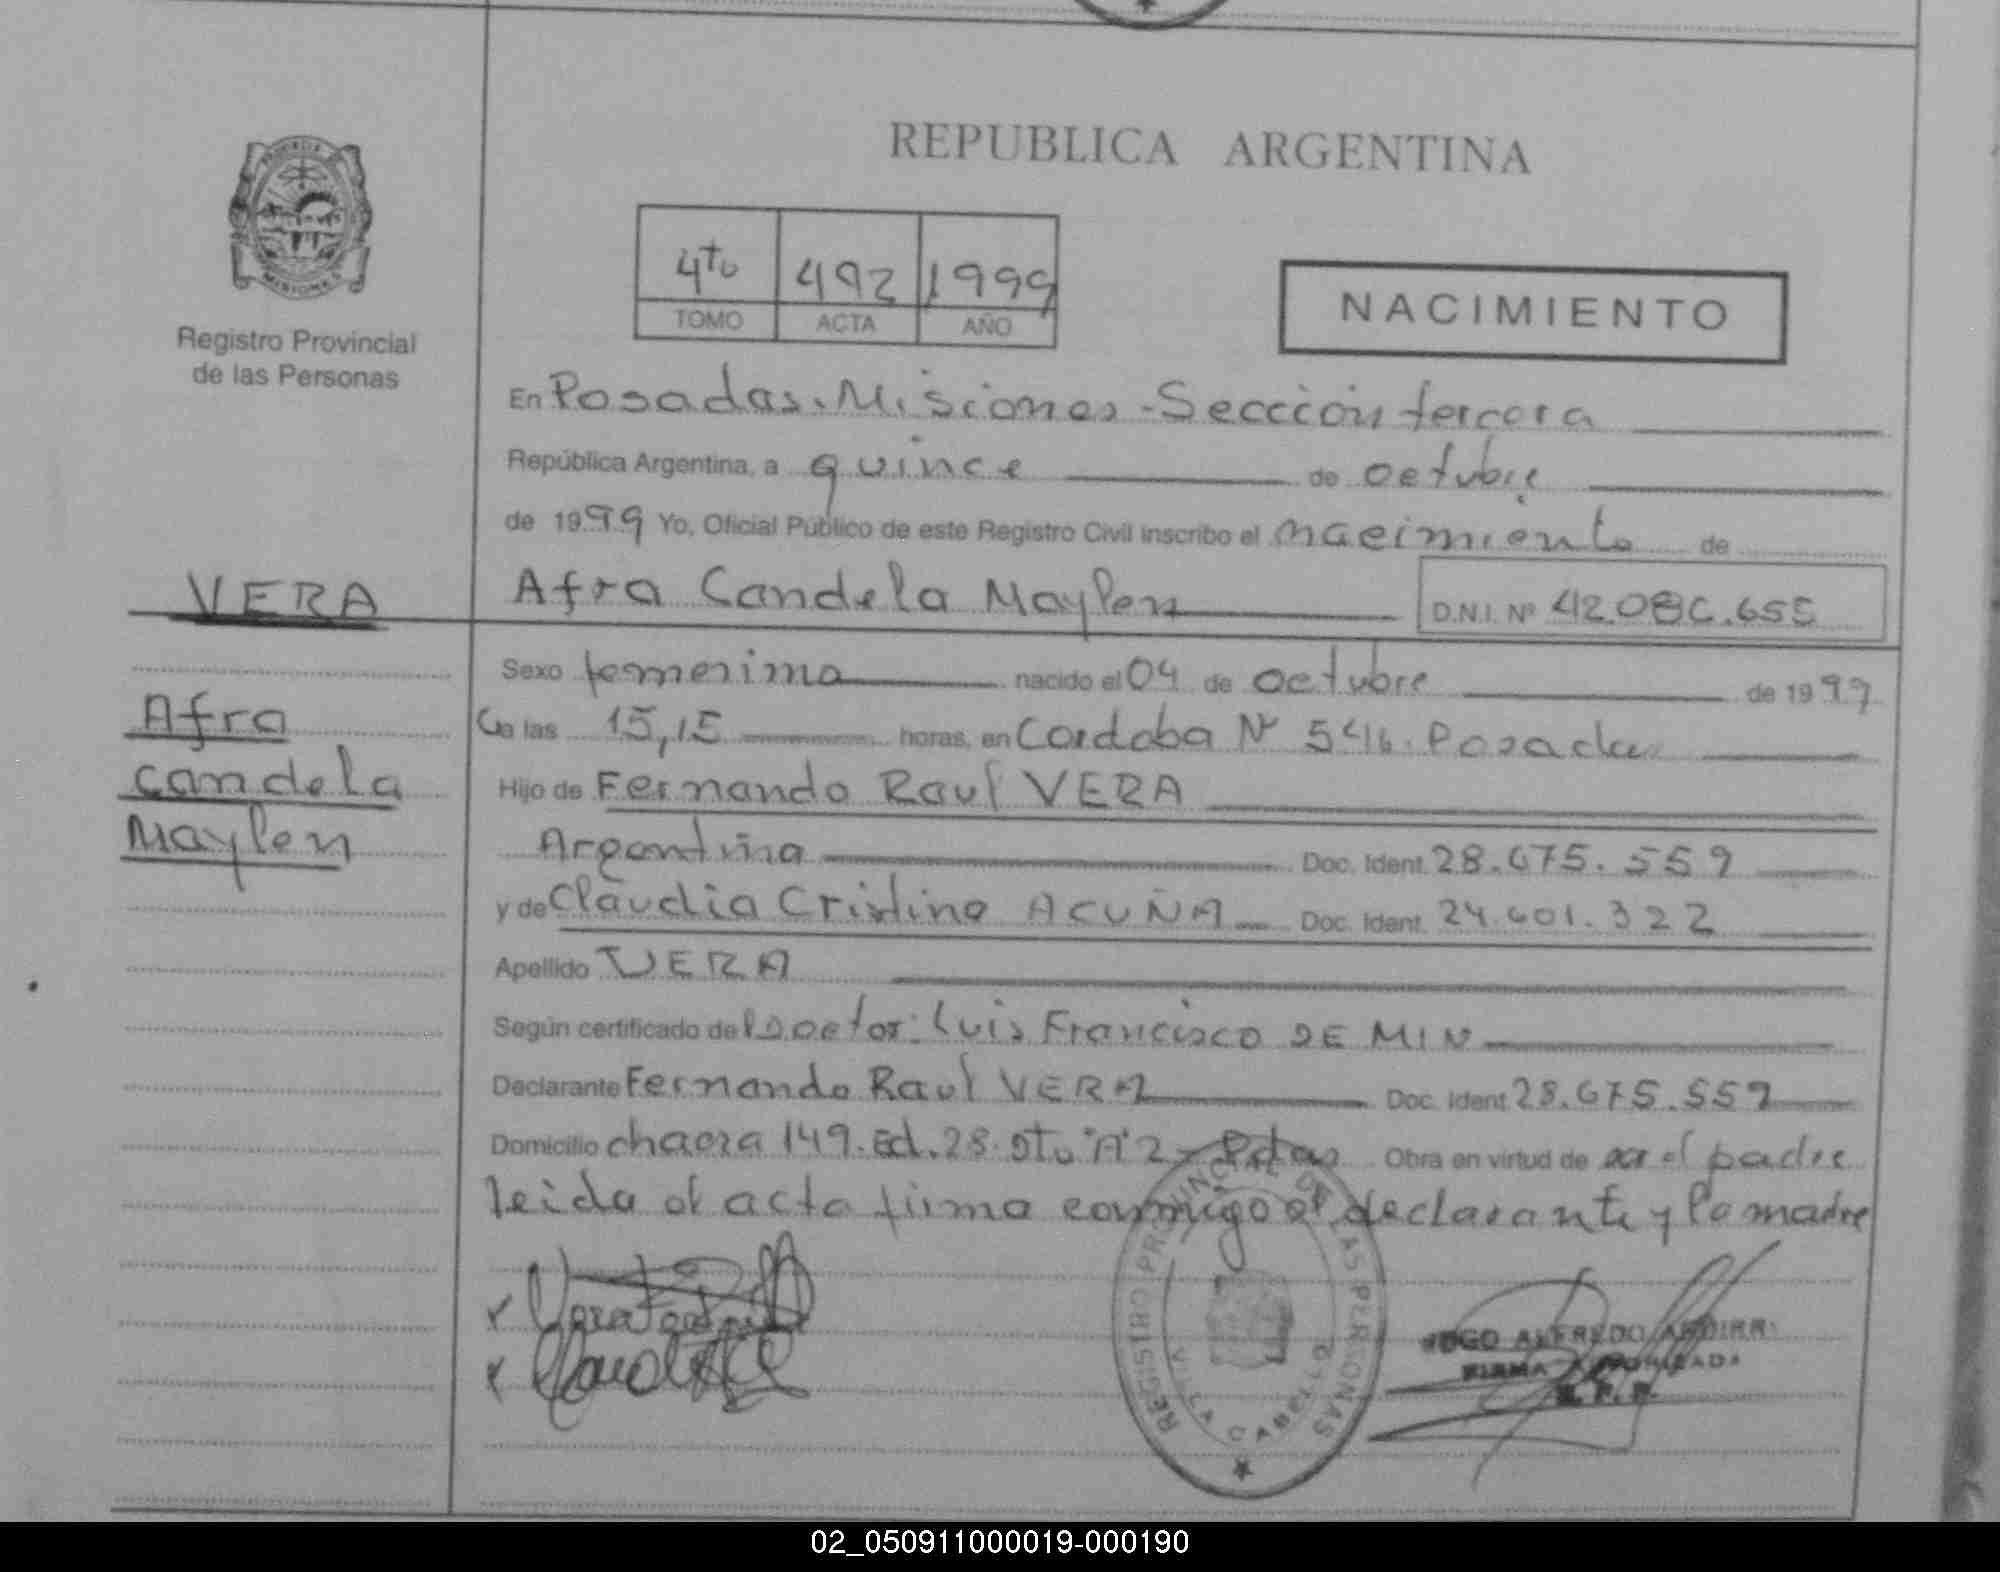 REPUBLICA ARGENTINA
4to 492 1999
TOMO ACTA AÑO
NACIMIENTO
Registro Provincial
de las Personas
En Posadas. Misiones - Sección tercera
República Argentina, a quince de octubre
de 1999 Yo, Oficial Público de este Registro Civil inscribo el nacimiento de
VERA
Afra Candela Maylen D.N.I. Nº
Sexo femenino nacido el 04 de octubre de 1999
Afra
a las 15,15 horas, en Cordoba Nº Posadas
candela
Hijo de Fernando Raul VERA
Maylen
Argentina Doc. Ident. 28.675.559
y de Claudia Cristina ACUÑA Doc. Ident. 24.601.322
Apellido VERA
Según certificado del Doctor: Luis Francisco DE MIN
Declarante Fernando Raul VERA Doc. Ident. 28.675.559
Domicilio chacra 149. Ed. 28. Dto "A" 2 - Pdas Obra en virtud de ser el padre
leida el acta firma conmigo el declarante y la madre
REGISTRO PROVINCIAL DE LAS PERSONAS
VILLA CABELLO
HUGO ALFREDO
FIRMA AUTORIZADA
02_050911000019-000190